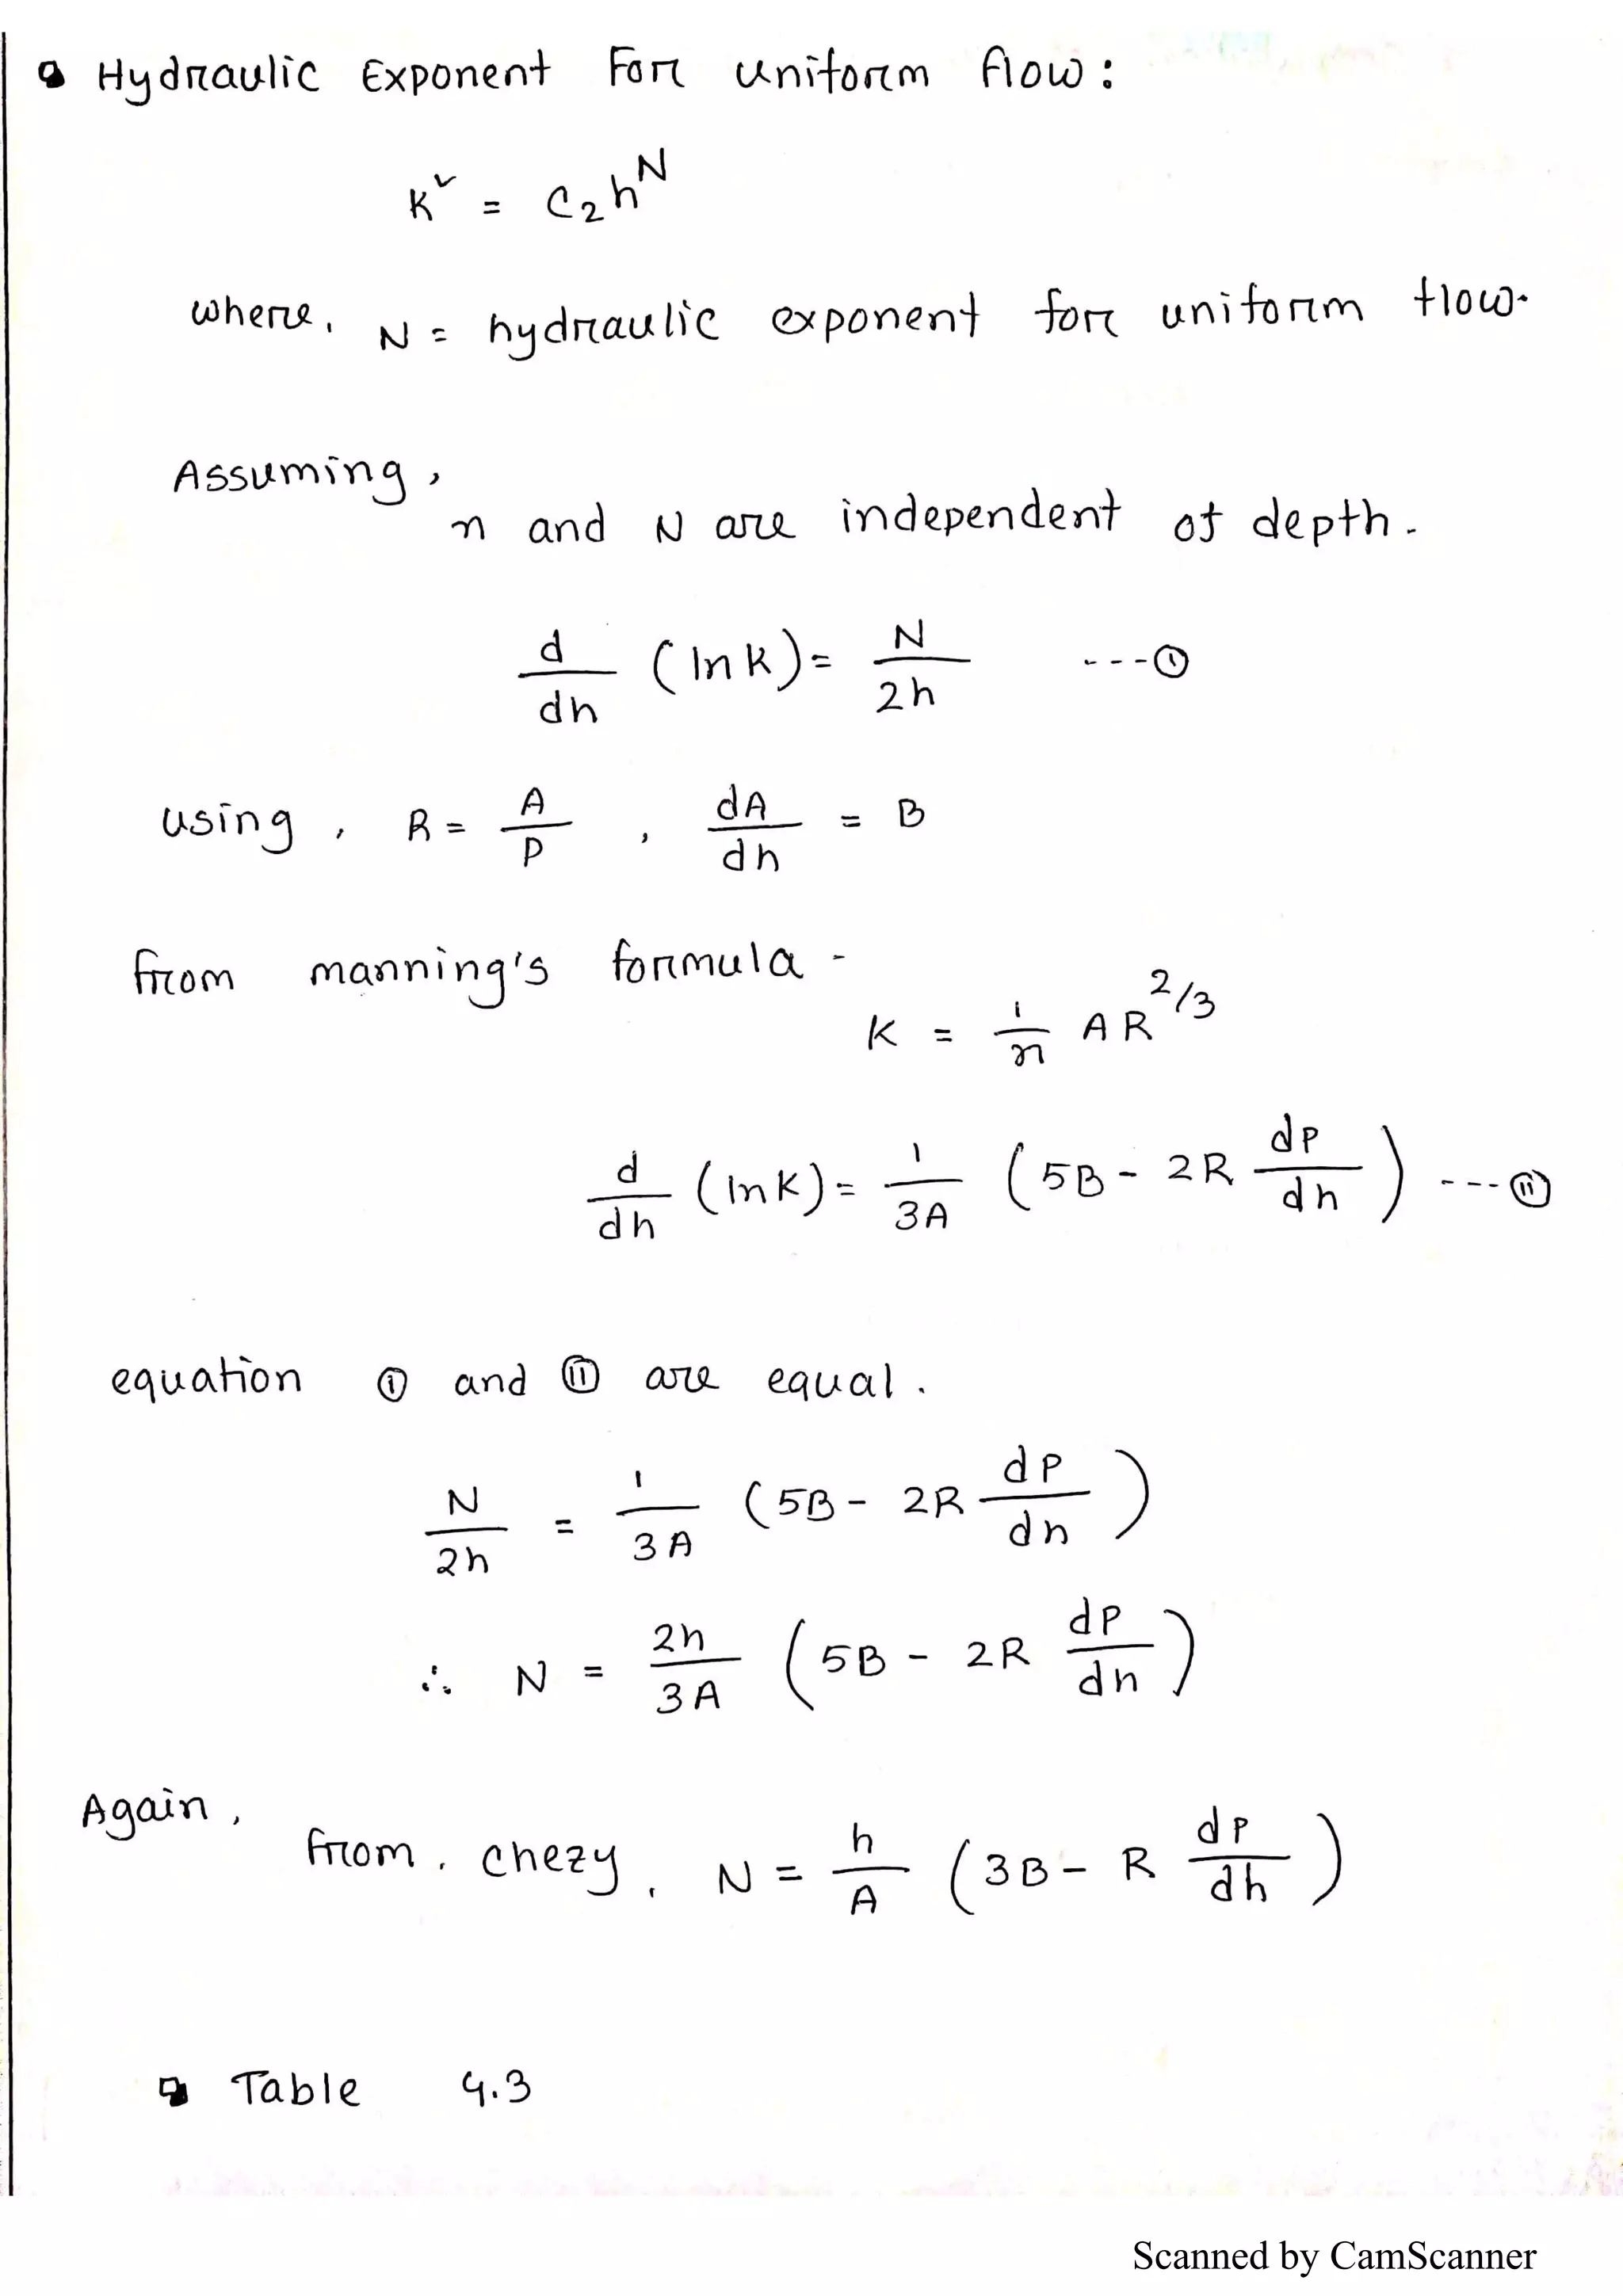 Hydraulic Exponent For uniform flow:
K² = C₂h^N
where, N = hydraulic exponent for uniform flow.
Assuming,
n and N are independent of depth.
d/dh (ln K) = N/2h ---- (i)
using, R = A/P , dA/dh = B
from manning's formula -
K = 1/n AR^2/3
d/dh (ln K) = 1/3A (5B - 2R dP/dh) ---- (ii)
equation (i) and (ii) are equal.
N/2h = 1/3A (5B - 2R dP/dh)
∴ N = 2h/3A (5B - 2R dP/dh)
Again,
from, chezy, N = h/A (3B - R dP/dh)
Table 4.3
Scanned by CamScanner